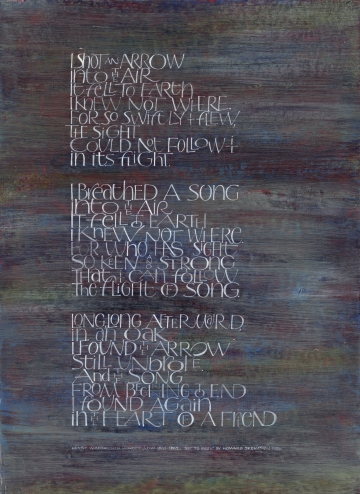 I SHOT AN ARROW
INTO THE AIR,
IT FELL TO EARTH,
I KNEW NOT WHERE,
FOR SO SWIFTLY IT FLEW,
THE SIGHT
COULD NOT FOLLOW IT
IN ITS FLIGHT.
I BREATHED A SONG
INTO THE AIR,
IT FELL TO EARTH,
I KNEW NOT WHERE,
FOR WHO HAS SIGHT
SO KEEN & STRONG
THAT IT CAN FOLLOW
THE FLIGHT OF SONG.
LONG, LONG AFTERWARD,
IN AN OAK
I FOUND THE ARROW
STILL UNBROKE,
AND THE SONG,
FROM BEGINNING TO END
I FOUND AGAIN
IN THE HEART OF A FRIEND
HENRY WADSWORTH